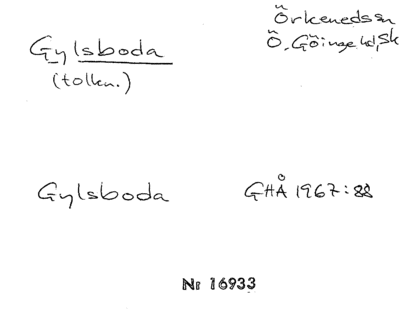 Gylsboda
(tolkn.)
Örkeneds sn
Ö. Göinge hd, Sk
Gylsboda
GHÅ 1967:88
Nr 16933